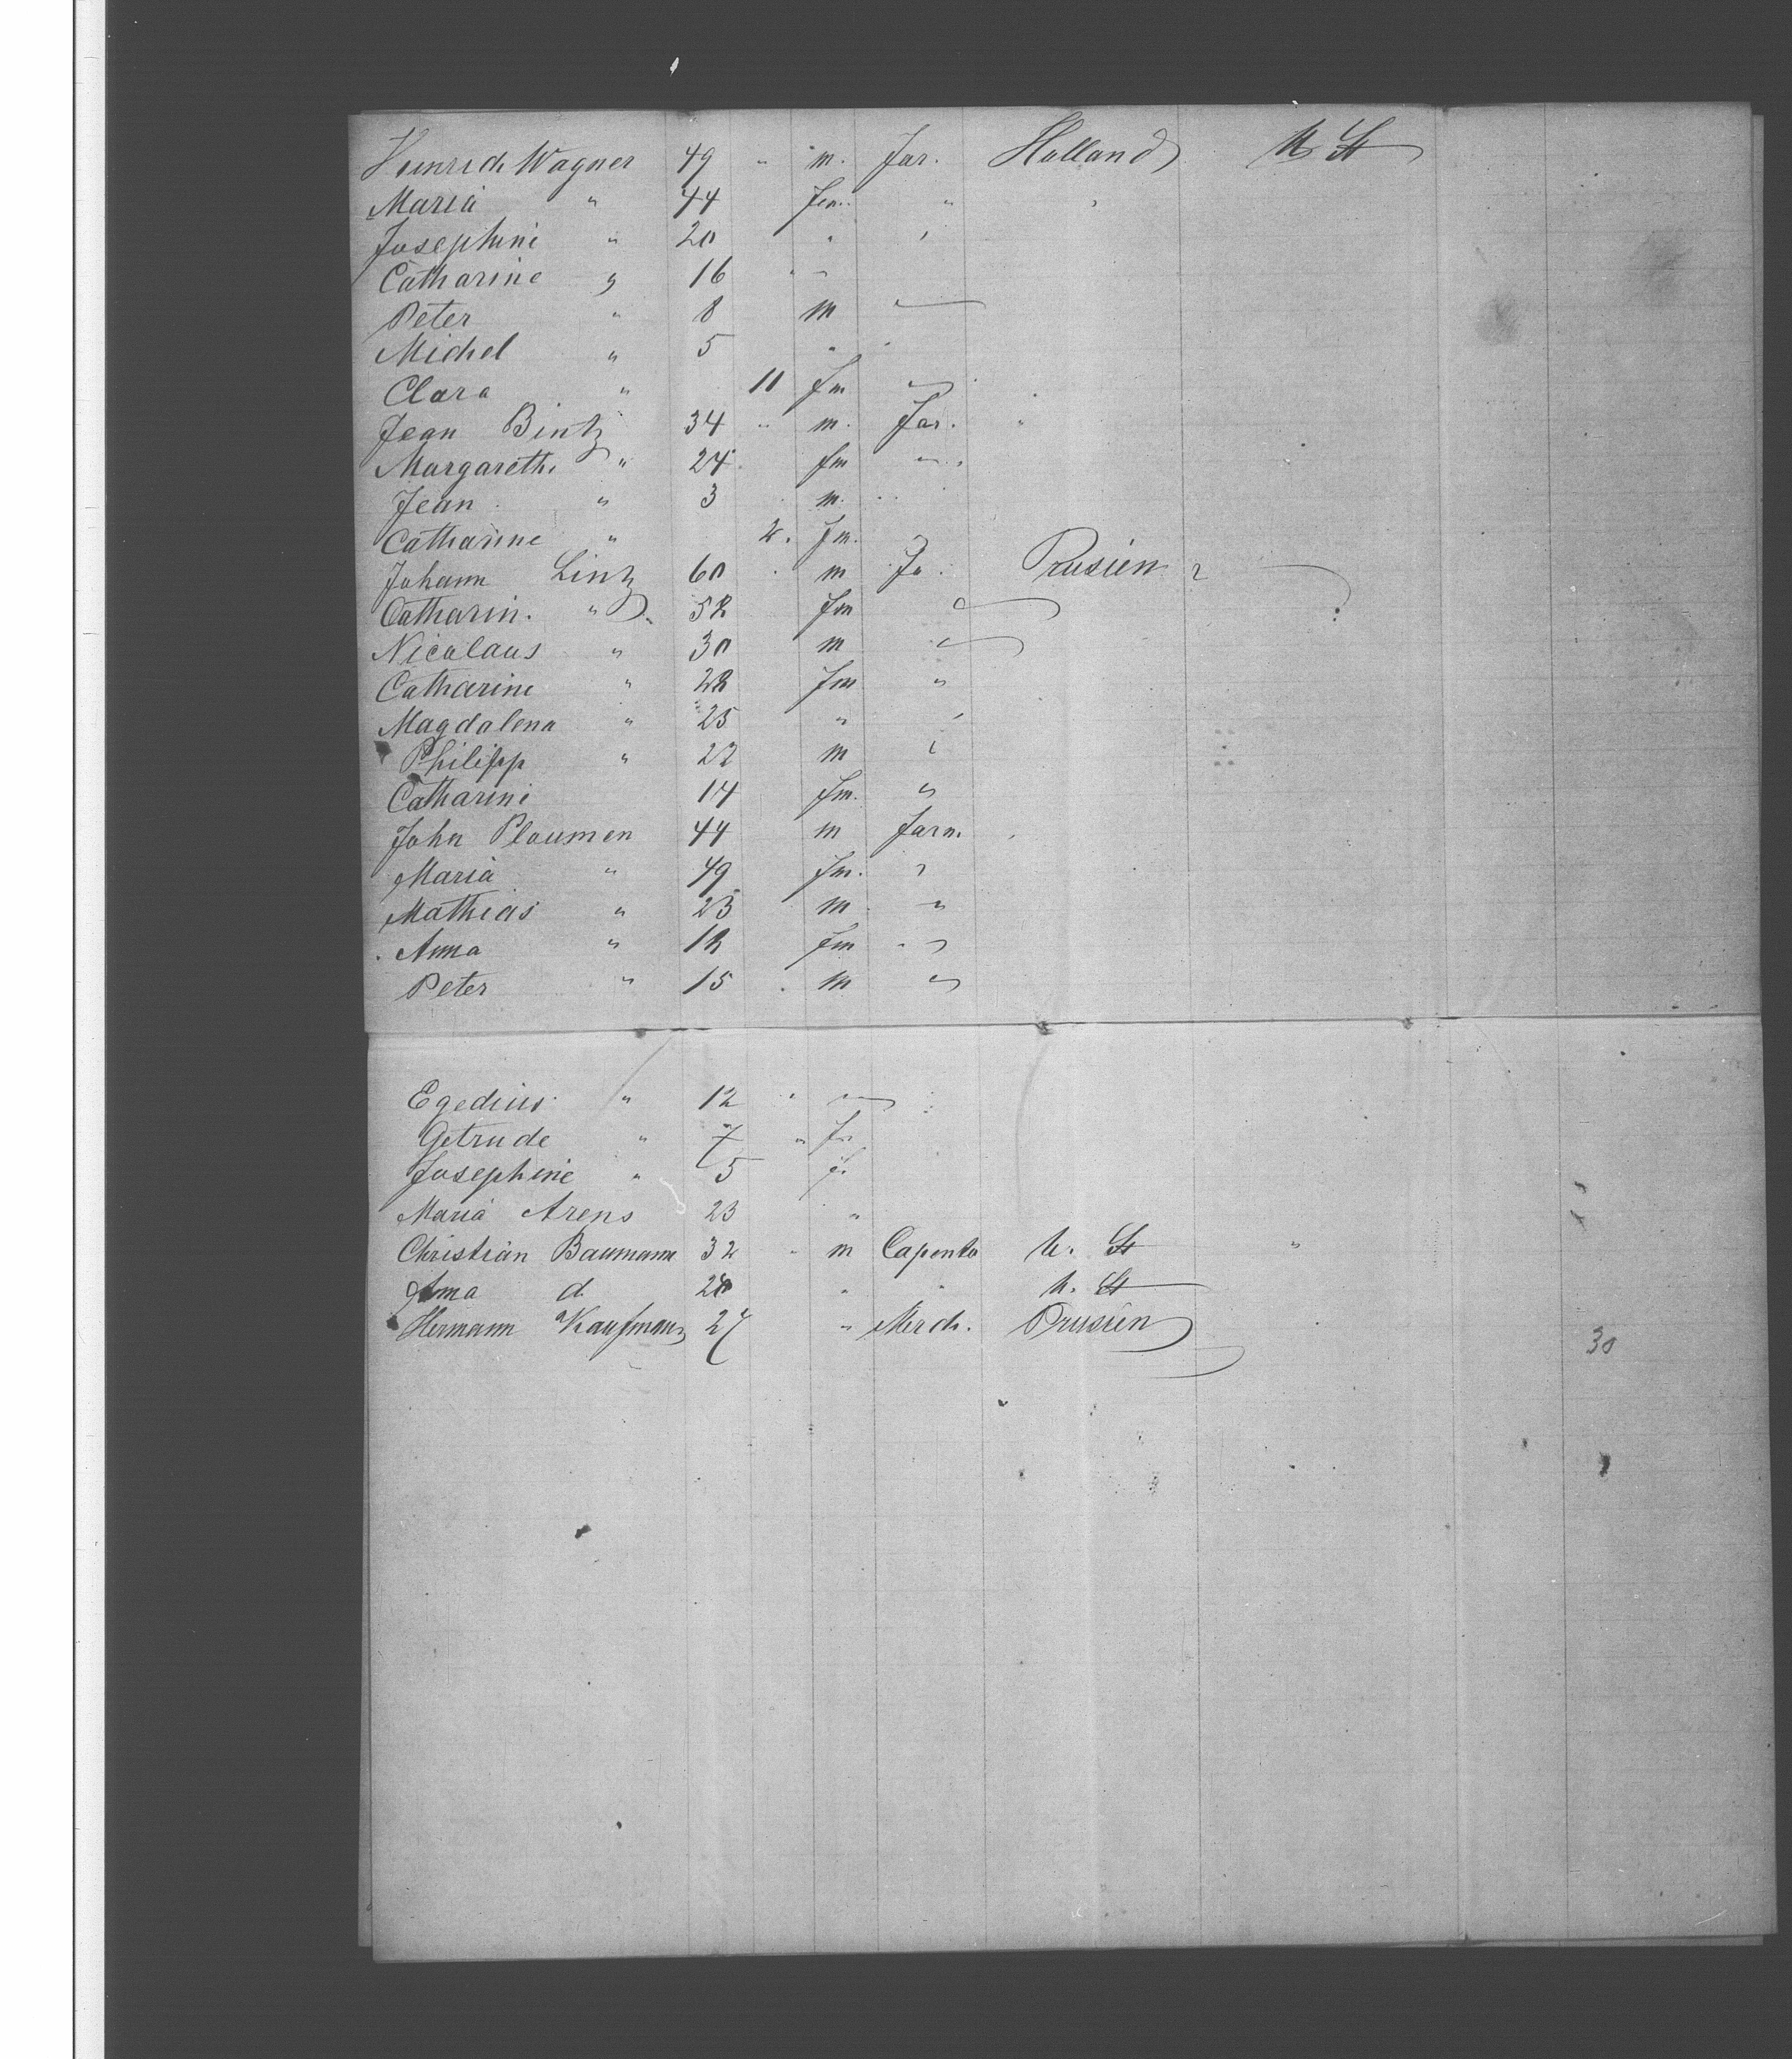 Heinrich Wagner 49 " m. Far. Holland U St
Maria " 44 fm. " "
Josephine " 20 " "
Catharine " 16 " "
Peter " 8 m
Michel " 5 "
Clara " 11 fm "
Jean Bintz 34 " m. Far. "
Margarethe " 24 fm "
Jean " 3 m.
Catharine " 2. fm.
Johann Lintz 60 m Fa. Prusien
Catharin. " 58 fm
Nicolaus " 30 m
Catharine " 28 fm "
Magdalena " 25 " "
Philipp " 22 m "
Catharine 14 fm. "
John Ploumen 44 m farm.
Maria " 49 fm. "
Mathias " 23 m "
Anna " 18 fm "
Peter " 15 m "
Egedius " 12 " "
Getrude " 7 " f
Josephine " 5 f
Maria Arens 23 "
Christian Baumann 32 " m Capenta U. St "
Anna d. 28 " " U. St
Hermann Kaufmann 27 " Merch. Prusien
30